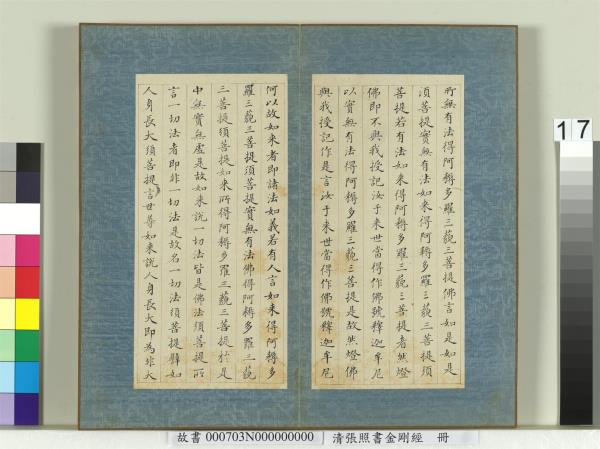 所無有法得阿耨多羅三藐三菩提佛言如是如是
須菩提實無有法如來得阿耨多羅三藐三菩提須
菩提若有法如來得阿耨多羅三藐三菩提者然燈
佛即不與我授記汝于來世當得作佛號釋迦牟尼
以實無有法得阿耨多羅三藐三菩提是故然燈佛
與我授記作是言汝于來世當得作佛號釋迦牟尼
何以故如來者即諸法如義若有人言如來得阿耨多
羅三藐三菩提須菩提實無有法佛得阿耨多羅三藐
三菩提須菩提如來所得阿耨多羅三藐三菩提於是
中無實無虛是故如來說一切法皆是佛法須菩提所
言一切法者即非一切法是故名一切法須菩提譬如
人身長大須菩提言世尊如來說人身長大即為非大
17
故書 000703N000000000 清張照書金剛經 冊